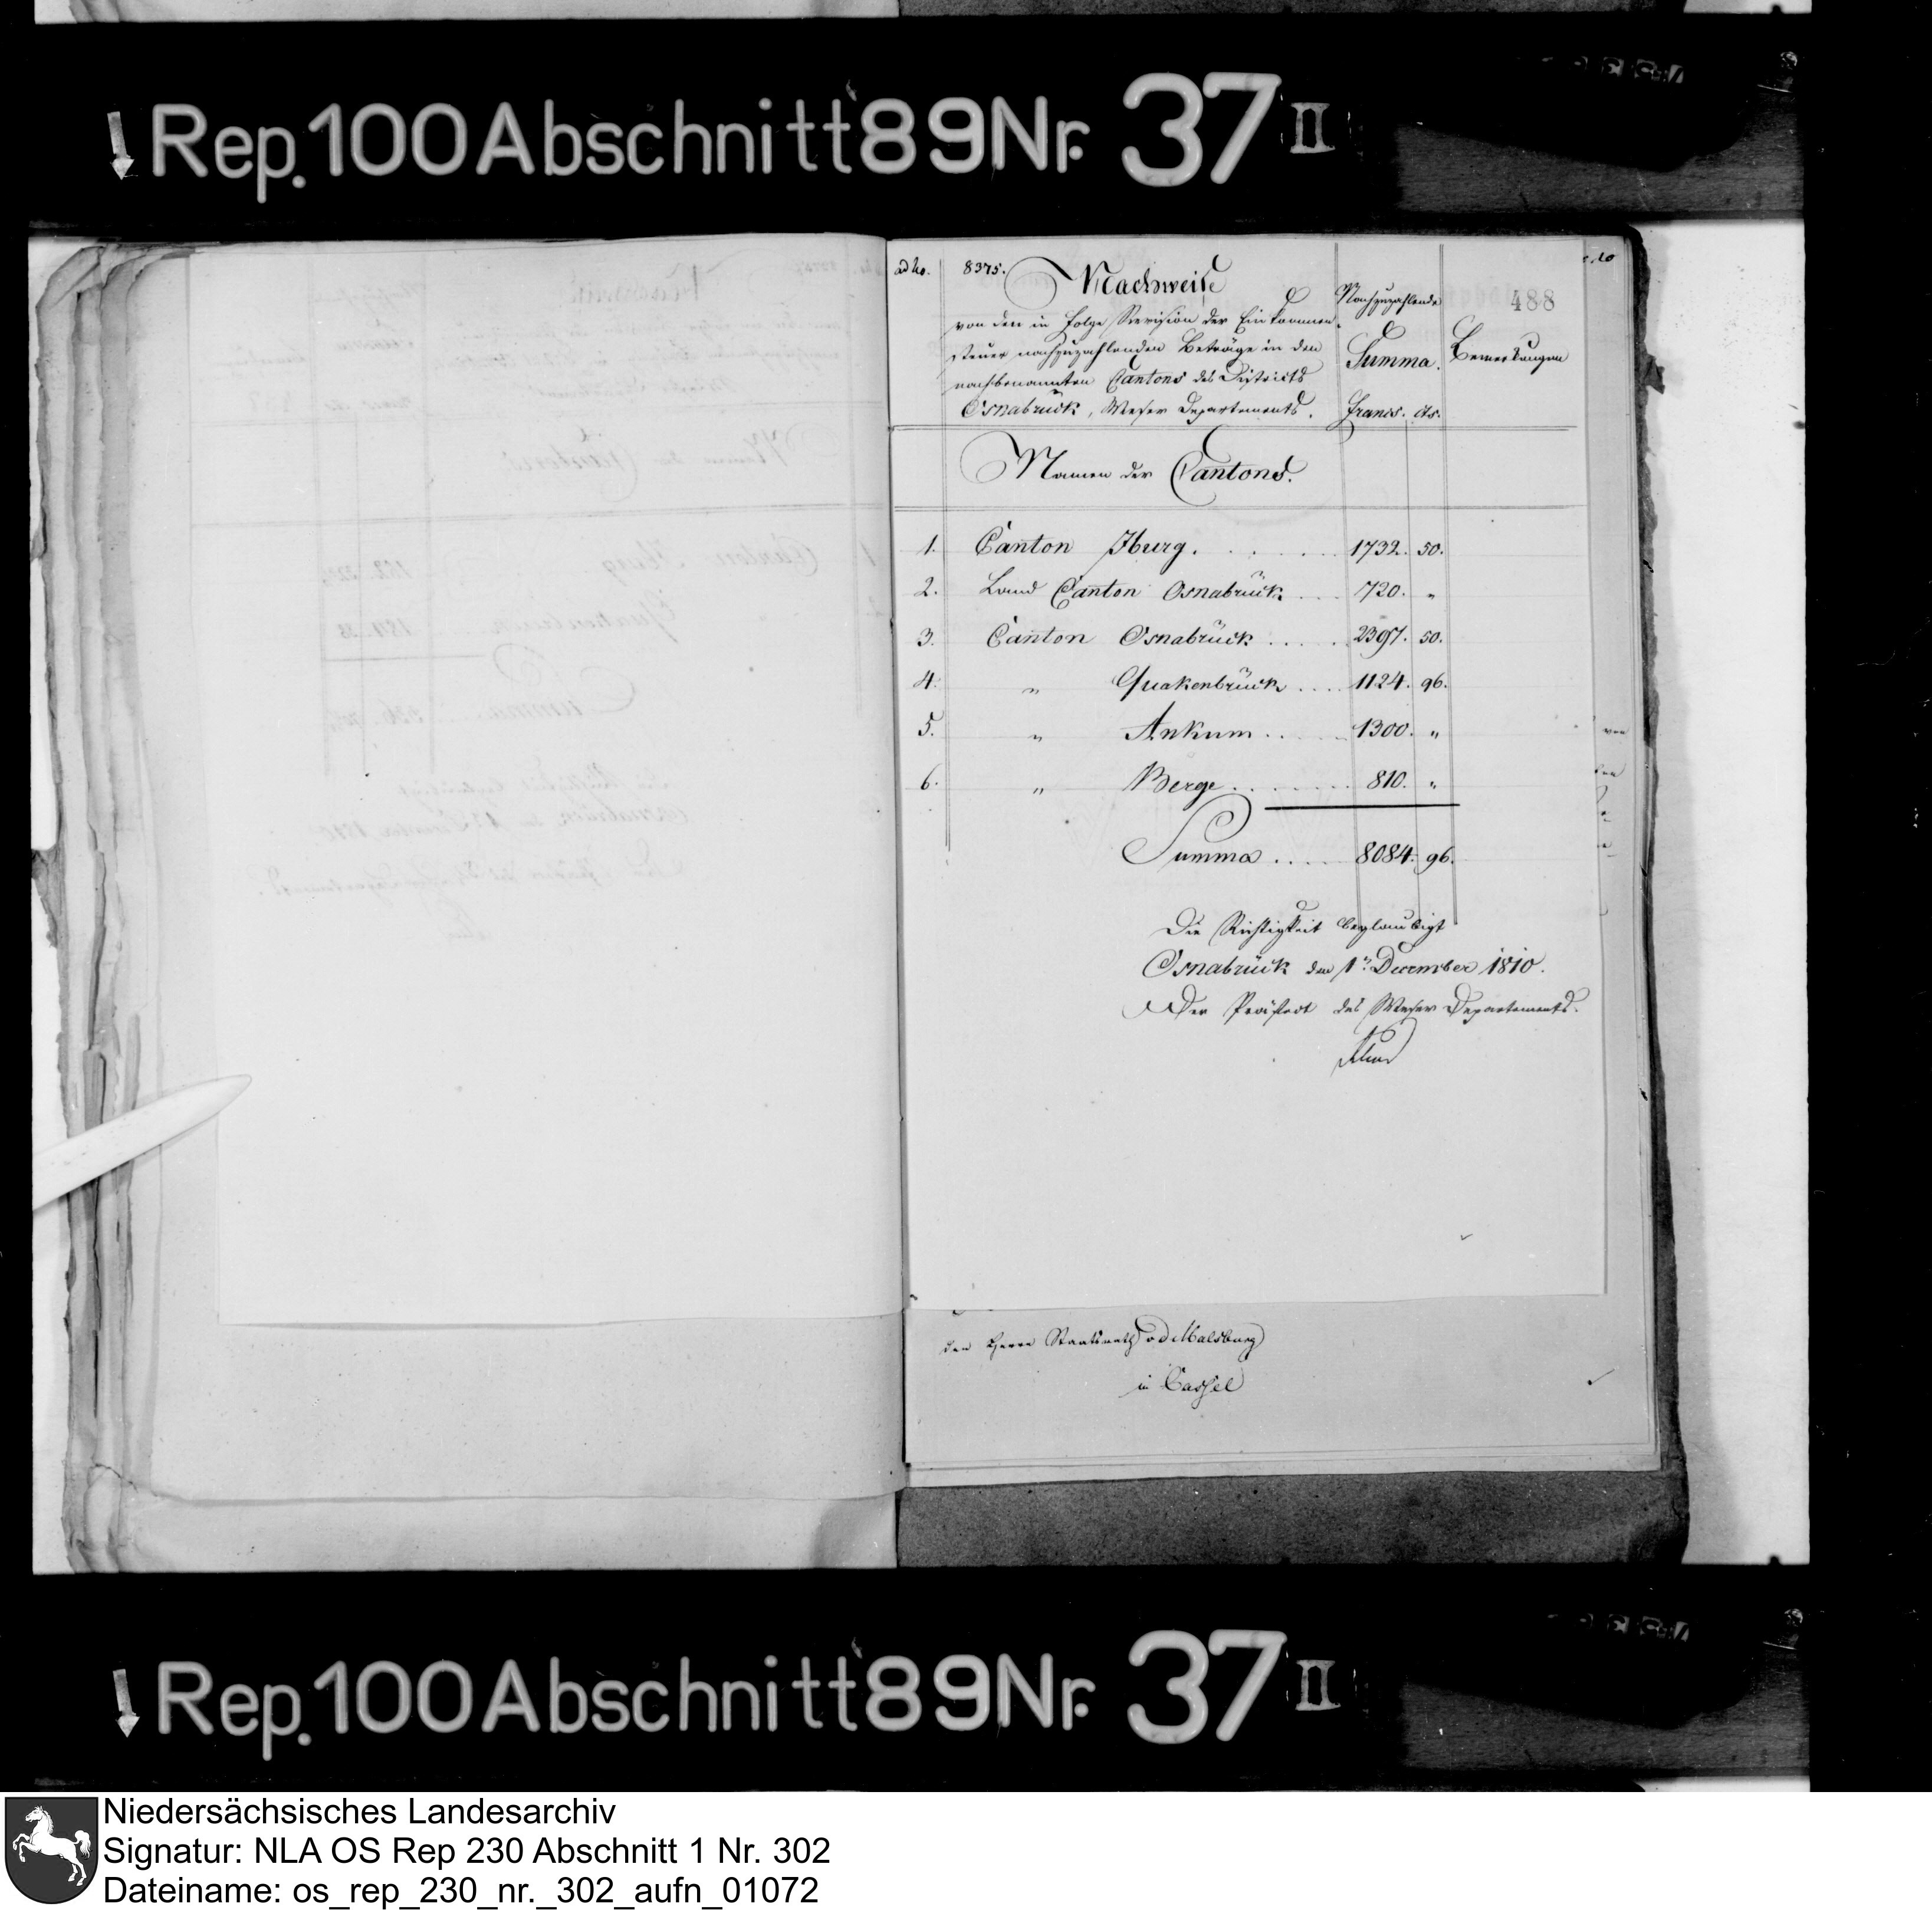 Rep. 100 Abschnitt 89 Nr. 37 II
ad No. 8375.
488
Nachweise
von den in Folge Revision der Einkommen-
steuer nachzuzahlenden Beträge in den
nachbenannten Cantons des Districts
Osnabrück, Weser Departements.
Nachzuzahlende
Summa.
Francs. cts.
Bemerkungen
Namen der Cantons.
1. Canton Iburg. . . . . . 1732. 50.
2. Land Canton Osnabrück . . . 720. "
3. Canton Osnabrück . . . . . 2397. 50.
4. " Quakenbrück . . . . 1124. 96.
5. " Ankum . . . . . 1300. "
6. " Berge . . . . . . . 810. "
Summa . . . . . 8084. 96.
Die Richtigkeit beglaubigt
Osnabrück den 1n December 1810.
Der Präfect des Weser Departements.
den Herrn Staatsrath v d Malsburg
in Cassel
Rep. 100 Abschnitt 89 Nr. 37 II
Niedersächsisches Landesarchiv
Signatur: NLA OS Rep 230 Abschnitt 1 Nr. 302
Dateiname: os_rep_230_nr._302_aufn_01072